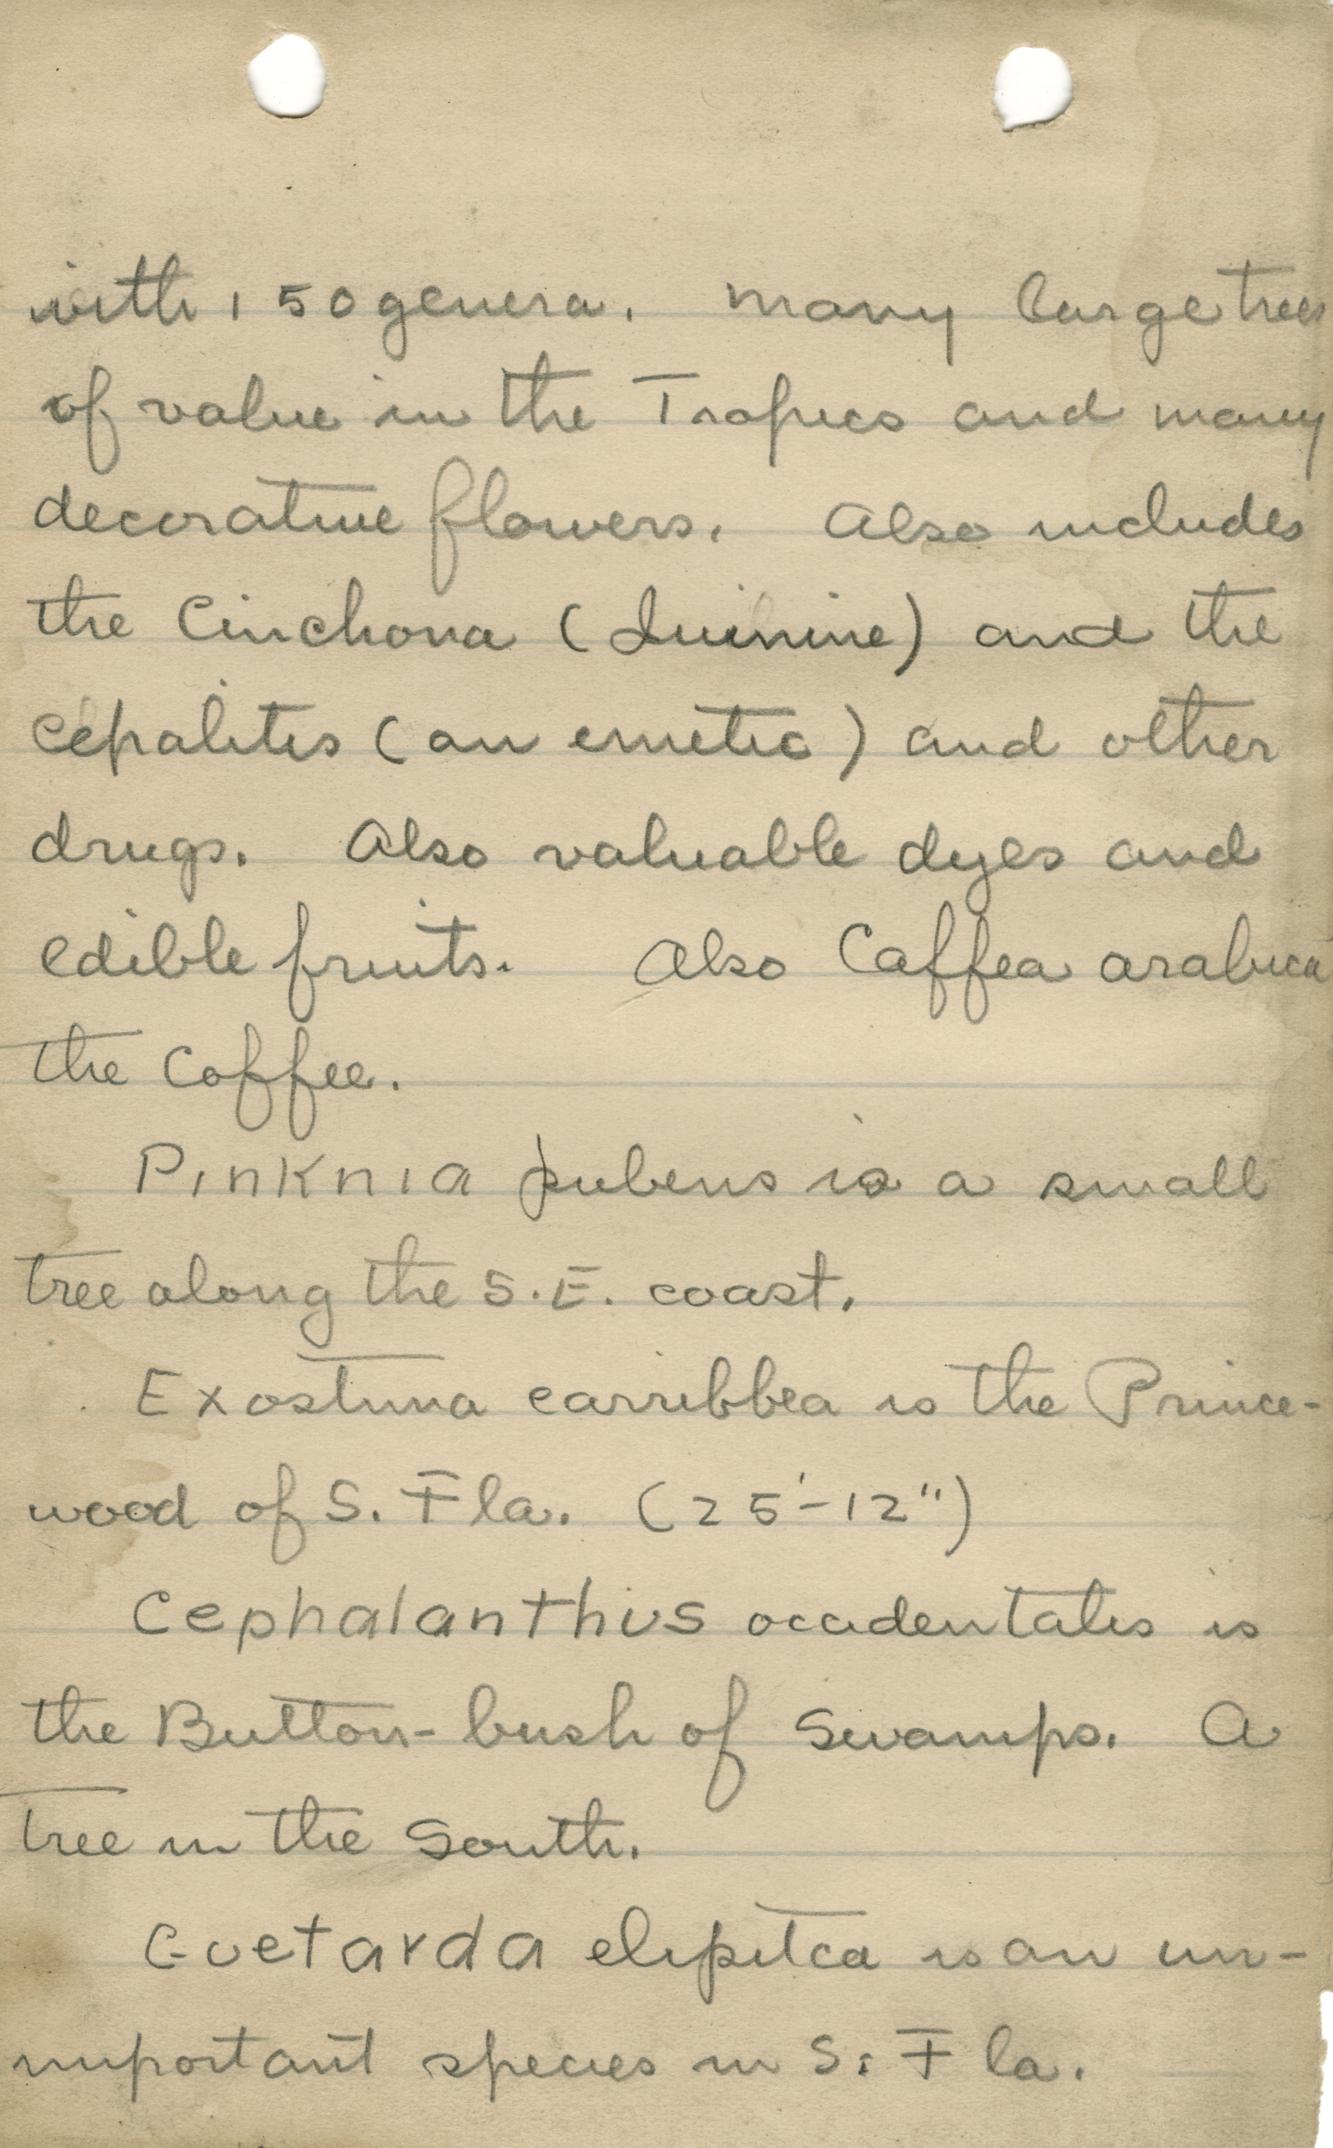 with 150 genera. Many large trees
of value in the Tropics and many
decorative flowers. Also includes
the Cinchona (Quinine) and the
cepalites (an emetic) and other
drugs. Also valuable dyes and
edible fruits. Also Caffea arabica
the Coffee.
Pinknia pubens is a small
tree along the S.E. coast.
Exostima carribbea is the Prince-
wood of S. Fla. (25'-12")
Cephalanthus occidentalis is
the Button-bush of Swamps. A
tree in the South.
Guetarda eliptca is an un-
important species in S. Fla.